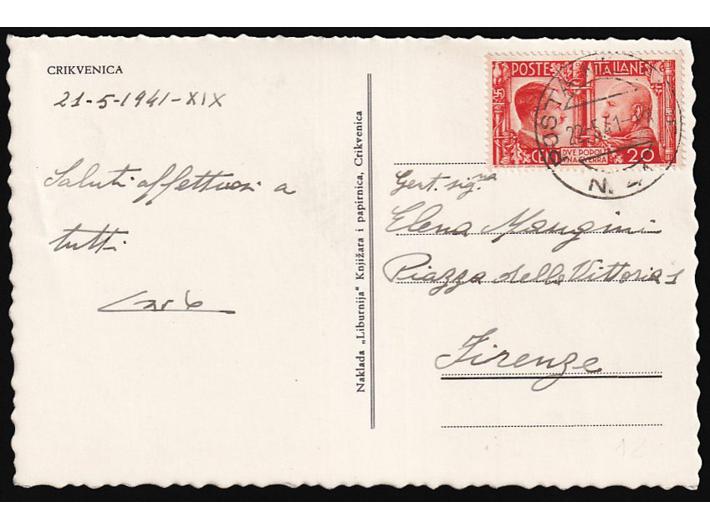 CRIKVENICA
21-5-1941-XIX
Saluti affettuosi a
tutti
Naklada „Liburnija" Knjižara i papirnica, Crikvenica
POSTE ITALIANE
DVE POPOLI
GUERRA
CENT 20
POSTA
22.5.41
N.
Gent. sig.na
Elena Mangini
Piazza della Vittoria 1
Firenze
12